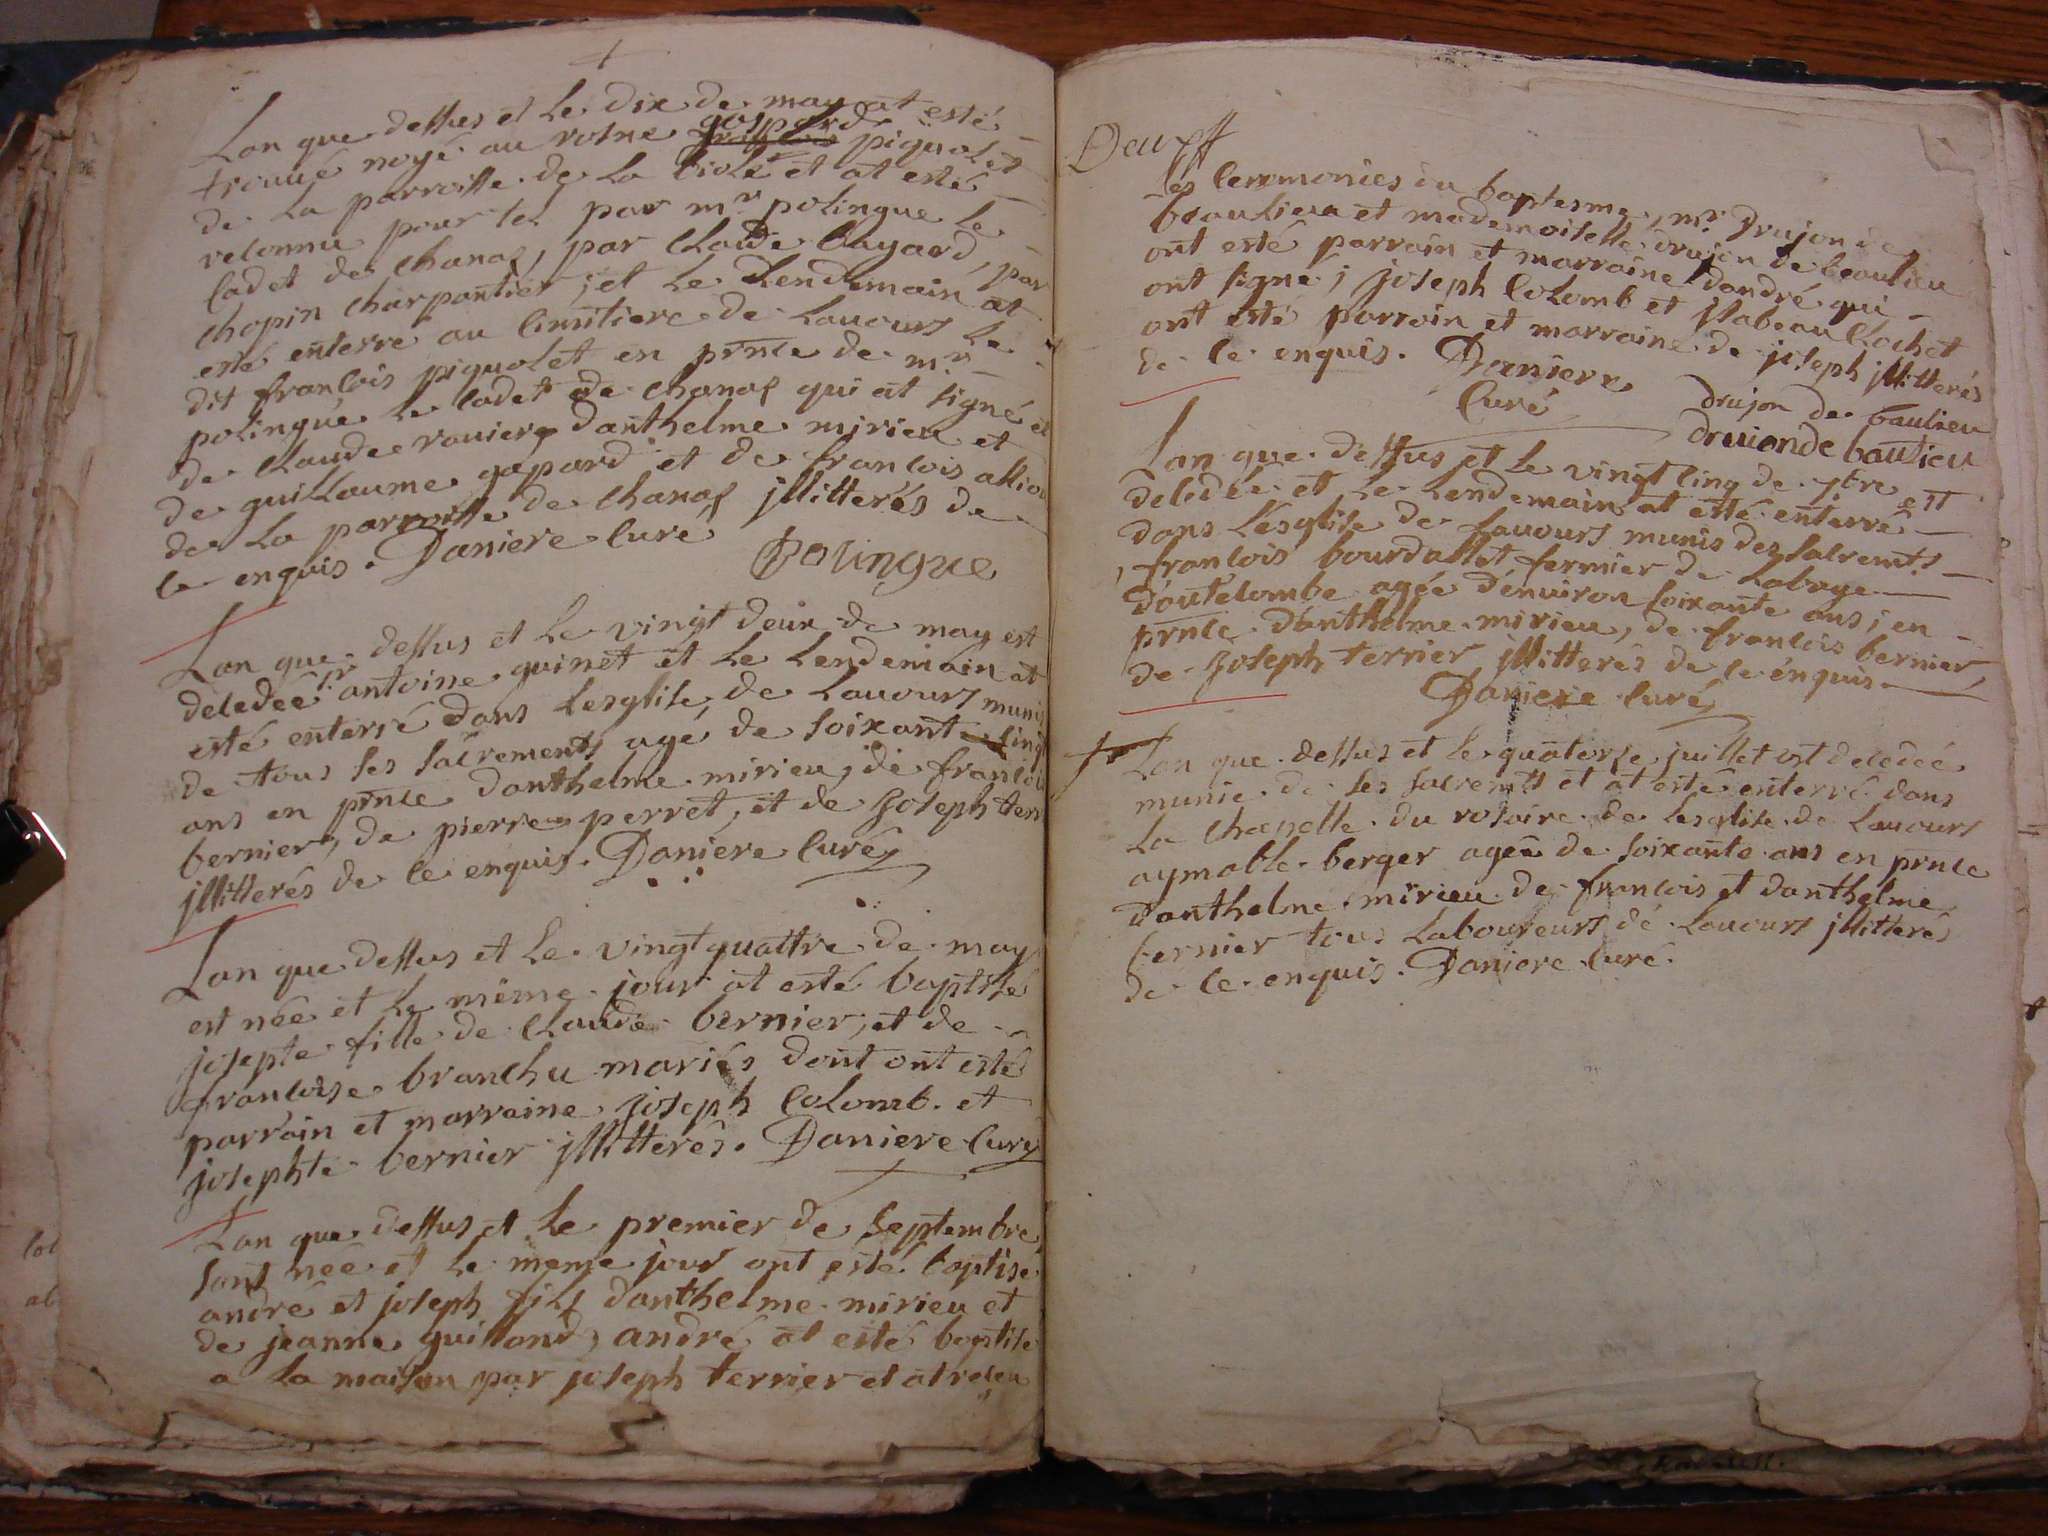 Lan que dessus et le dix de may at esté
trouué noyé au rosne gaspard piquolet
de la parroisse de la biole et at esté
reconnu pour tel par mr polingue le
cadet de chanaz, par claude bayard, par
chopin charpantier ; et le lendemain at
esté enterré au cimitiere de lauours le
dit francois piquolet en pnce de mr
polingue le cadet de chanaz qui at signé et
de claude rauiere danthelme mirieu et
de guillaume gaspard et de francois
de la parroisse de chanaz jllitterés de
ce enquis . Daniere curé
Polingue
Lan que dessus et le vingt deux de may est
decedeé sr antoine guinet et le lendemain at
esté enterré dans lesglise de lauours munis
de tous ses sacrements agé de soixante cinq
ans en pnce danthelme mirieu, de francois
bernier, de pierre perret, et de joseph terri
jllitterés de ce enquis. Daniere curé
Lan que dessus et le vingt quattre de may
est neé et le méme jour at esté baptisé
josepte fille de claude bernier, et de
francoise branchu mariés dont ont estés
parrain et marraine joseph colomb et
josephte bernier jllitterés. Daniere curé
Lan que dessus et le premier de septembre
sont neé et le meme jour ont esté baptisé
andré et joseph fils danthelme mirieu et
de jeanne guilland, andré at esté baptisé
a la maison par joseph terrier et at receu
Deux ff
les ceremonies du baptesme, mr Drujon de
beaulieu et mademoiselle drujon de beaulieu
ont esté parrain et marraine dandré qui
ont signé ; joseph colomb et jsabeau cochet
ont esté parrain et marraine de joseph jllitterés
de ce enquis. Daniere
curé
drujon de baulieu
druionde baulieu
lan que dessus et le vingt cinq de 7bre est
decedée et le lendemain at esté enterré
dans l'esglise de lauours munis des sacremts
francois bourdallet fermier de labaye
d'autecombe agée d'enuiron soixante ans ; en
pnce d'anthelme mirieu, de francois bernier,
de joseph terrier jllitterés de ce enquis
Daniere curé
Lan que dessus et le quatorse juillet est decedeé
munie de ses sacremts et at esté enterré dans
la chapelle du rosaire de lesglise de lauours
aymable berger ageé de soixante ans en pnce
danthelme mirieu de francois et danthelme
bernier tous laboureurs de lauours jllitterés
de ce enquis. Daniere curé.